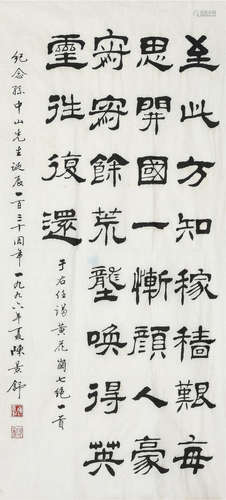 至此方知稼穡艱每
思開國一慚顏人豪
寂寂餘荒壟喚得英
靈往復還
于右任謁黃花崗七絕一首
紀念孫中山先生誕辰一百三十周年一九九六年夏陳景舒